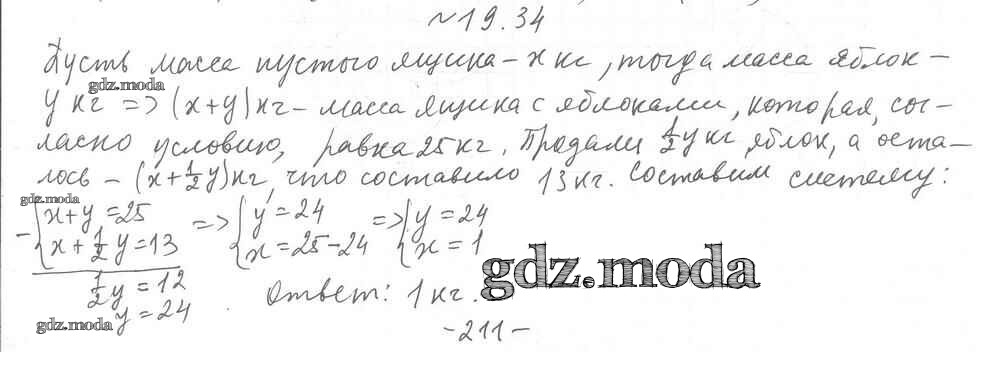 №19.34
Пусть масса пустого ящика – x кг, тогда масса яблок –
gdz.moda
y кг => (x+y) кг – масса ящика с яблоками, которая, сог-
ласно условию, равна 25 кг. Продали 1/2 y кг яблок, а оста-
лось – (x+1/2 y) кг, что составило 13 кг. Составим систему:
gdz.moda
– { x+y=25 => { y=24 => { y=24
x+1/2 y=13 x=25-24 x=1
1/2 y=12 Ответ: 1 кг.
gdz.moda
y=24
gdz.moda
-211-